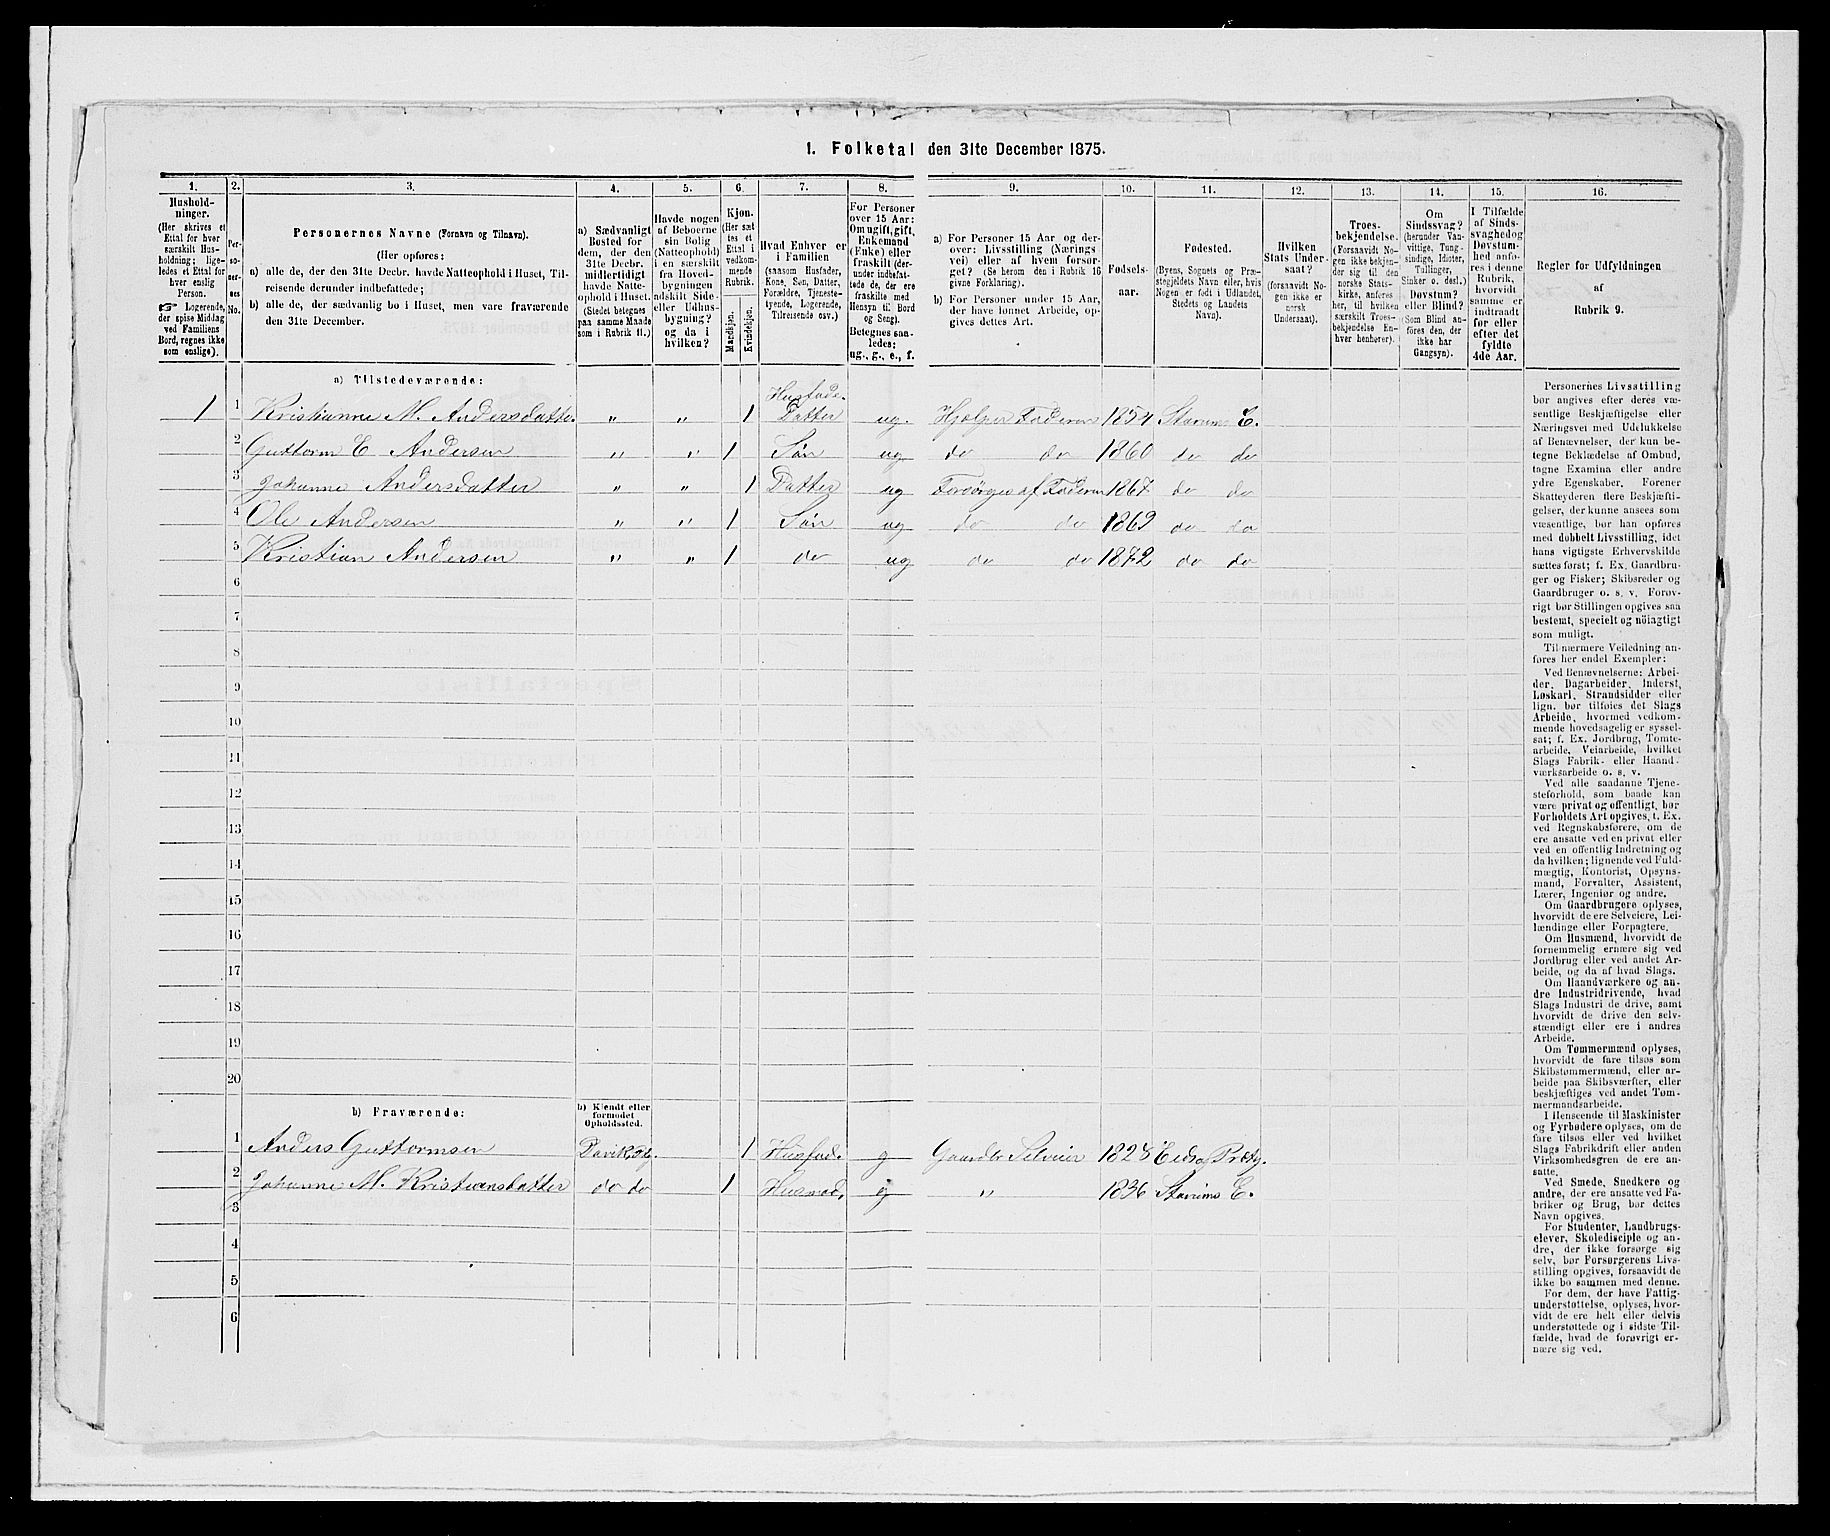 1. Folketal den 31te December 1875.
1. 2. 3. 4. 5. 6. 7. 8. 9. 10. 11. 12. 13. 14. 15. 16.
Hushold-
ninger.
(Her skrives et
Ettal for hver
særskilt Hus-
holdning; lige-
ledes et Ettal for
hver enslig
Person.
☞ Logerende,
der spise Middag
ved Familiens
Bord, regnes ikke
som enslige).
Per-
so-
ner-
nes
No.
Personernes Navne (Fornavn og Tilnavn).
(Her opføres:
a) alle de, der den 31te Decbr. havde Natteophold i Huset, Til-
reisende derunder indbefattede;
b) alle de, der sædvanlig bo i Huset, men vare fraværende
den 31te December.
a) Sædvanligt
Bosted for
dem, der den
31te Decbr.
midlertidigt
havde Natte-
ophold i Huset.
(Stedet betegnes
paa samme Maade
som i Rubrik 11.)
Havde nogen
af Beboerne
sin Bolig
(Natteophold)
i en særskilt
fra Hoved-
bygningen
adskilt Side-
eller Udhus-
bygning?
og da i
hvilken?
Kjøn.
(Her sæt-
tes et
Ettal i
vedkom-
mende
Rubrik.
Mandkjøn.
Kvindekjøn.
Hvad Enhver er
i Familien
(saasom Husfader,
Kone, Søn, Datter,
Forældre, Tjeneste-
tyende, Logerende,
Tilreisende osv.)
For Personer
over 15 Aar:
Om ugift, gift,
Enkemand
(Enke) eller
fraskilt (der-
under indbefat-
tede de, der ere
fraskilte med
Hensyn til Bord
og Seng).
Betegnes saa-
ledes:
ug., g., e., f.
a) For Personer 15 Aar og der-
over: Livsstilling (Nærings-
vei) eller af hvem forsør-
get? (Se herom den i Rubrik 16
givne Forklaring).
b) For Personer under 15 Aar,
der have lønnet Arbeide, op-
gives dettes Art.
Fødsels-
aar.
Fødested.
(Byens, Sognets og Præ-
stegjeldets Navn eller, hvis
Nogen er født i Udlandet,
Stedets og Landets
Navn).
Hvilken
Stats Under-
saat?
(forsaavidt No-
gen ikke er
norsk
Undersaat).
Troes-
bekjendelse.
(Forsaavidt No-
gen ikke bekjen-
der sig til den
norske Stats-
kirke, anføres
her, til hvilken
særskilt Troes-
bekjendelse En-
hver henhører).
Om
Sindssvag?
(herunder Van-
vittige, Tung-
sindige, Idioter,
Tullinger,
Sinker o. desl.)
Døvstum?
eller Blind?
(Som Blind an-
føres den, der
ikke har
Gangsyn).
I Tilfælde
af Sinds-
svaghed og
Døvstum-
hed anfø-
res i denne
Rubrik,
hvorvidt
samme er
indtraadt
før eller
efter det
fyldte
4de Aar.
Regler for Udfyldningen
af
Rubrik 9.
a) Tilstedeværende:
1 1 Kristianne M. Andersdatter. " " 1 Husfade. Datter ug. Hjælper Faderen 1854 Starums E.
2 Guttorm E Andersen " " 1 Søn ug do do 1860 do do
3 Johanne Andersdatter " " 1 Datter ug Forsørges af Faderen 1867 do do
4 Ole Andersen " " 1 Søn ug do do 1869 do do
5 Kristian Andersen " " 1 do ug do do 1872 do do
6
7
8
9
10
11
12
13
14
15
16
17
18
19
20
b) Fraværende:
b) Kjendt eller
formodet
Opholdssted.
1 Anders Guttormsen 1 Husfad. g Gaardbr Selveier 1828
2 Johanne M. Kristiansdatter do do 1 Husmod, g " 1836 Starums E.
3
4
5
6
Personernes Livsstilling
bør angives efter deres væ-
sentlige Beskjæftigelse eller
Næringsvei med Udelukkelse
af Benævnelser, der kun be-
tegne Beklædelse af Ombud,
tagne Examina eller andre
ydre Egenskaber. Forener
Skatteyderen flere Beskjæfti-
gelser, der kunne ansees som
væsentlige, bør han opføres
med dobbelt Livsstilling, idet
hans vigtigste Erhvervskilde
sættes først; f. Ex. Gaardbru-
ger og Fisker; Skibsreder og
Gaardbruger o. s. v. Forøv-
rigt bør Stillingen opgives saa
bestemt, specielt og nöiagtigt
som muligt.
Til nærmere Veiledning an-
føres her endel Exempler:
Ved Benævnelserne: Arbei-
der, Dagarbeider, Inderst,
Løskarl, Strandsidder eller
lign. bør tilføies det Slags
Arbeide, hvormed vedkom-
mende hovedsagelig er syssel-
sat; f. Ex. Jordbrug, Tomte-
arbeide, Veiarbeide, hvilket
Slags Fabrik- eller Haand-
værksarbeide o. s. v.
Ved alle saadanne Tjene-
steforhold, som baade kan
være privat og offentligt, bør
Forholdets Art opgives, t. Ex.
ved Regnskabsførere, om de
ere ansatte ved en privat eller
ved en offentlig Indretning og
da hvilken; lignende ved Fuld-
mægtig, Kontorist, Opsyns-
mand, Forvalter, Assistent,
Lærer, Ingeniør og andre.
Om Gaardbrugere oplyses,
hvorvidt de ere Selveiere, Lei-
lændinge eller Forpagtere.
Om Husmænd, hvorvidt de
fornemmelig ernære sig ved
Jordbrug eller ved andet Ar-
beide, og da af hvad Slags.
Om Haandværkere og an-
dre Industridrivende, hvad
Slags Industri de drive, samt
hvorvidt de drive den selv-
stændigt eller ere i andres
Arbeide.
Om Tømmermænd oplyses,
hvorvidt de fare tilsøs som
Skibstømmermænd, eller ar-
beide paa Skibsværfter, eller
beskjæftiges ved andet Tøm-
mermandsarbeide.
I Henseende til Maskinister
og Fyrbødere oplyses, om de
fare tilsøs eller ved hvilket
Slags Fabrikdrift eller anden
Virksomhedsgren de ere an-
satte.
Ved Smede, Snedkere og
andre, der ere ansatte ved Fa-
briker og Brug, bør dettes
Navn opgives.
For Studenter, Landbrugs-
elever, Skoledisciple og an-
dre, der ikke forsørge sig
selv, bør Forsørgerens Livs-
stilling opgives, forsaavidt de
ikke bo sammen med denne.
For dem, der have Fattig-
understøttelse, oplyses, hvor-
vidt de ere helt eller delvis
understøttede og i sidste Til-
fælde, hvad de forøvrigt er-
nære sig ved.